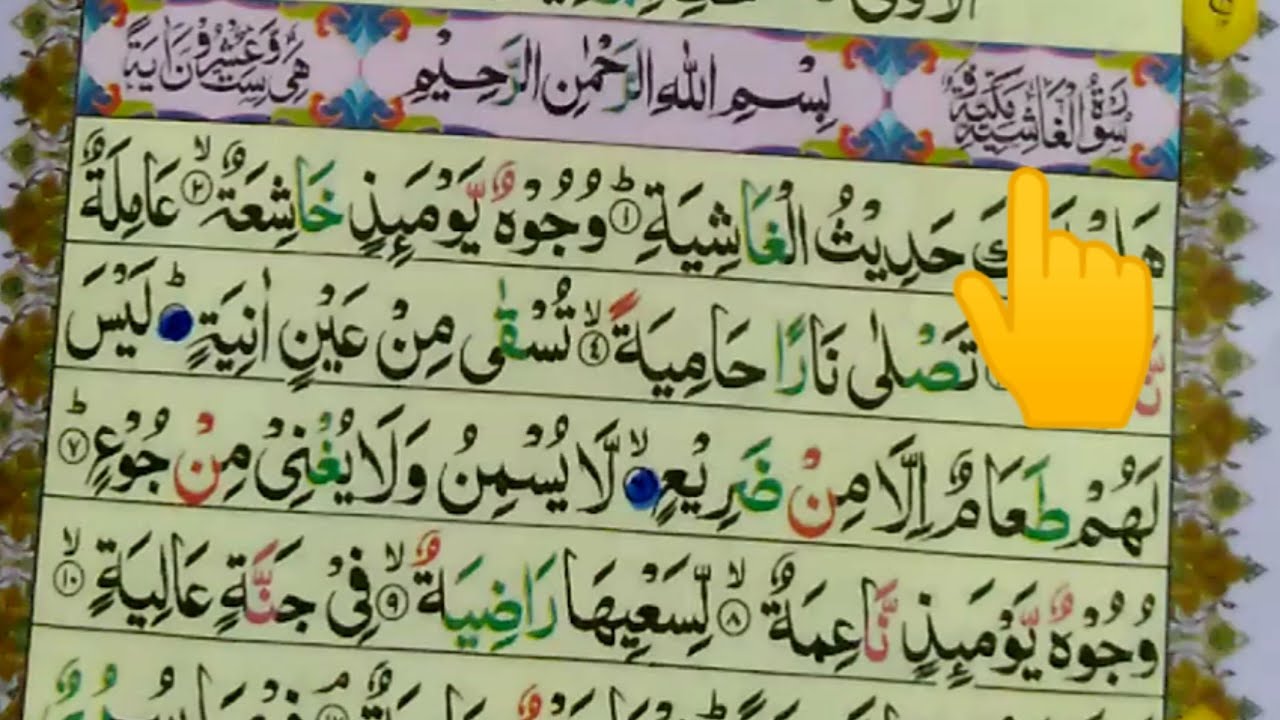 الْاَوْلٰى
سُوْرَةُ الْغَاشِيَةِ مَكِّيَّةٌ وَّ بِسْمِ اللهِ الرَّحْمٰنِ الرَّحِيْمِ هِىَ سِتٌّ وَّعِشْرُوْنَ اٰيَةً
حَدِيْثُ الْغَاشِيَةِ ؕ۱ وُجُوْهٌ يَّوْمَئِذٍ خَاشِعَةٌ ۙ۲ عَامِلَةٌ
تَصْلٰى نَارًا حَامِيَةً ۙ۴ تُسْقٰى مِنْ عَيْنٍ اٰنِيَةٍ ؕ لَيْسَ
لَهُمْ طَعَامٌ اِلَّا مِنْ ضَرِيْعٍ ۙ لَّا يُسْمِنُ وَلَا يُغْنِىْ مِنْ جُوْعٍ ؕ۷
وُجُوْهٌ يَّوْمَئِذٍ نَّاعِمَةٌ ۙ۸ لِّسَعْيِهَا رَاضِيَةٌ ۙ۹ فِىْ جَنَّةٍ عَالِيَةٍ ۙ۱۰